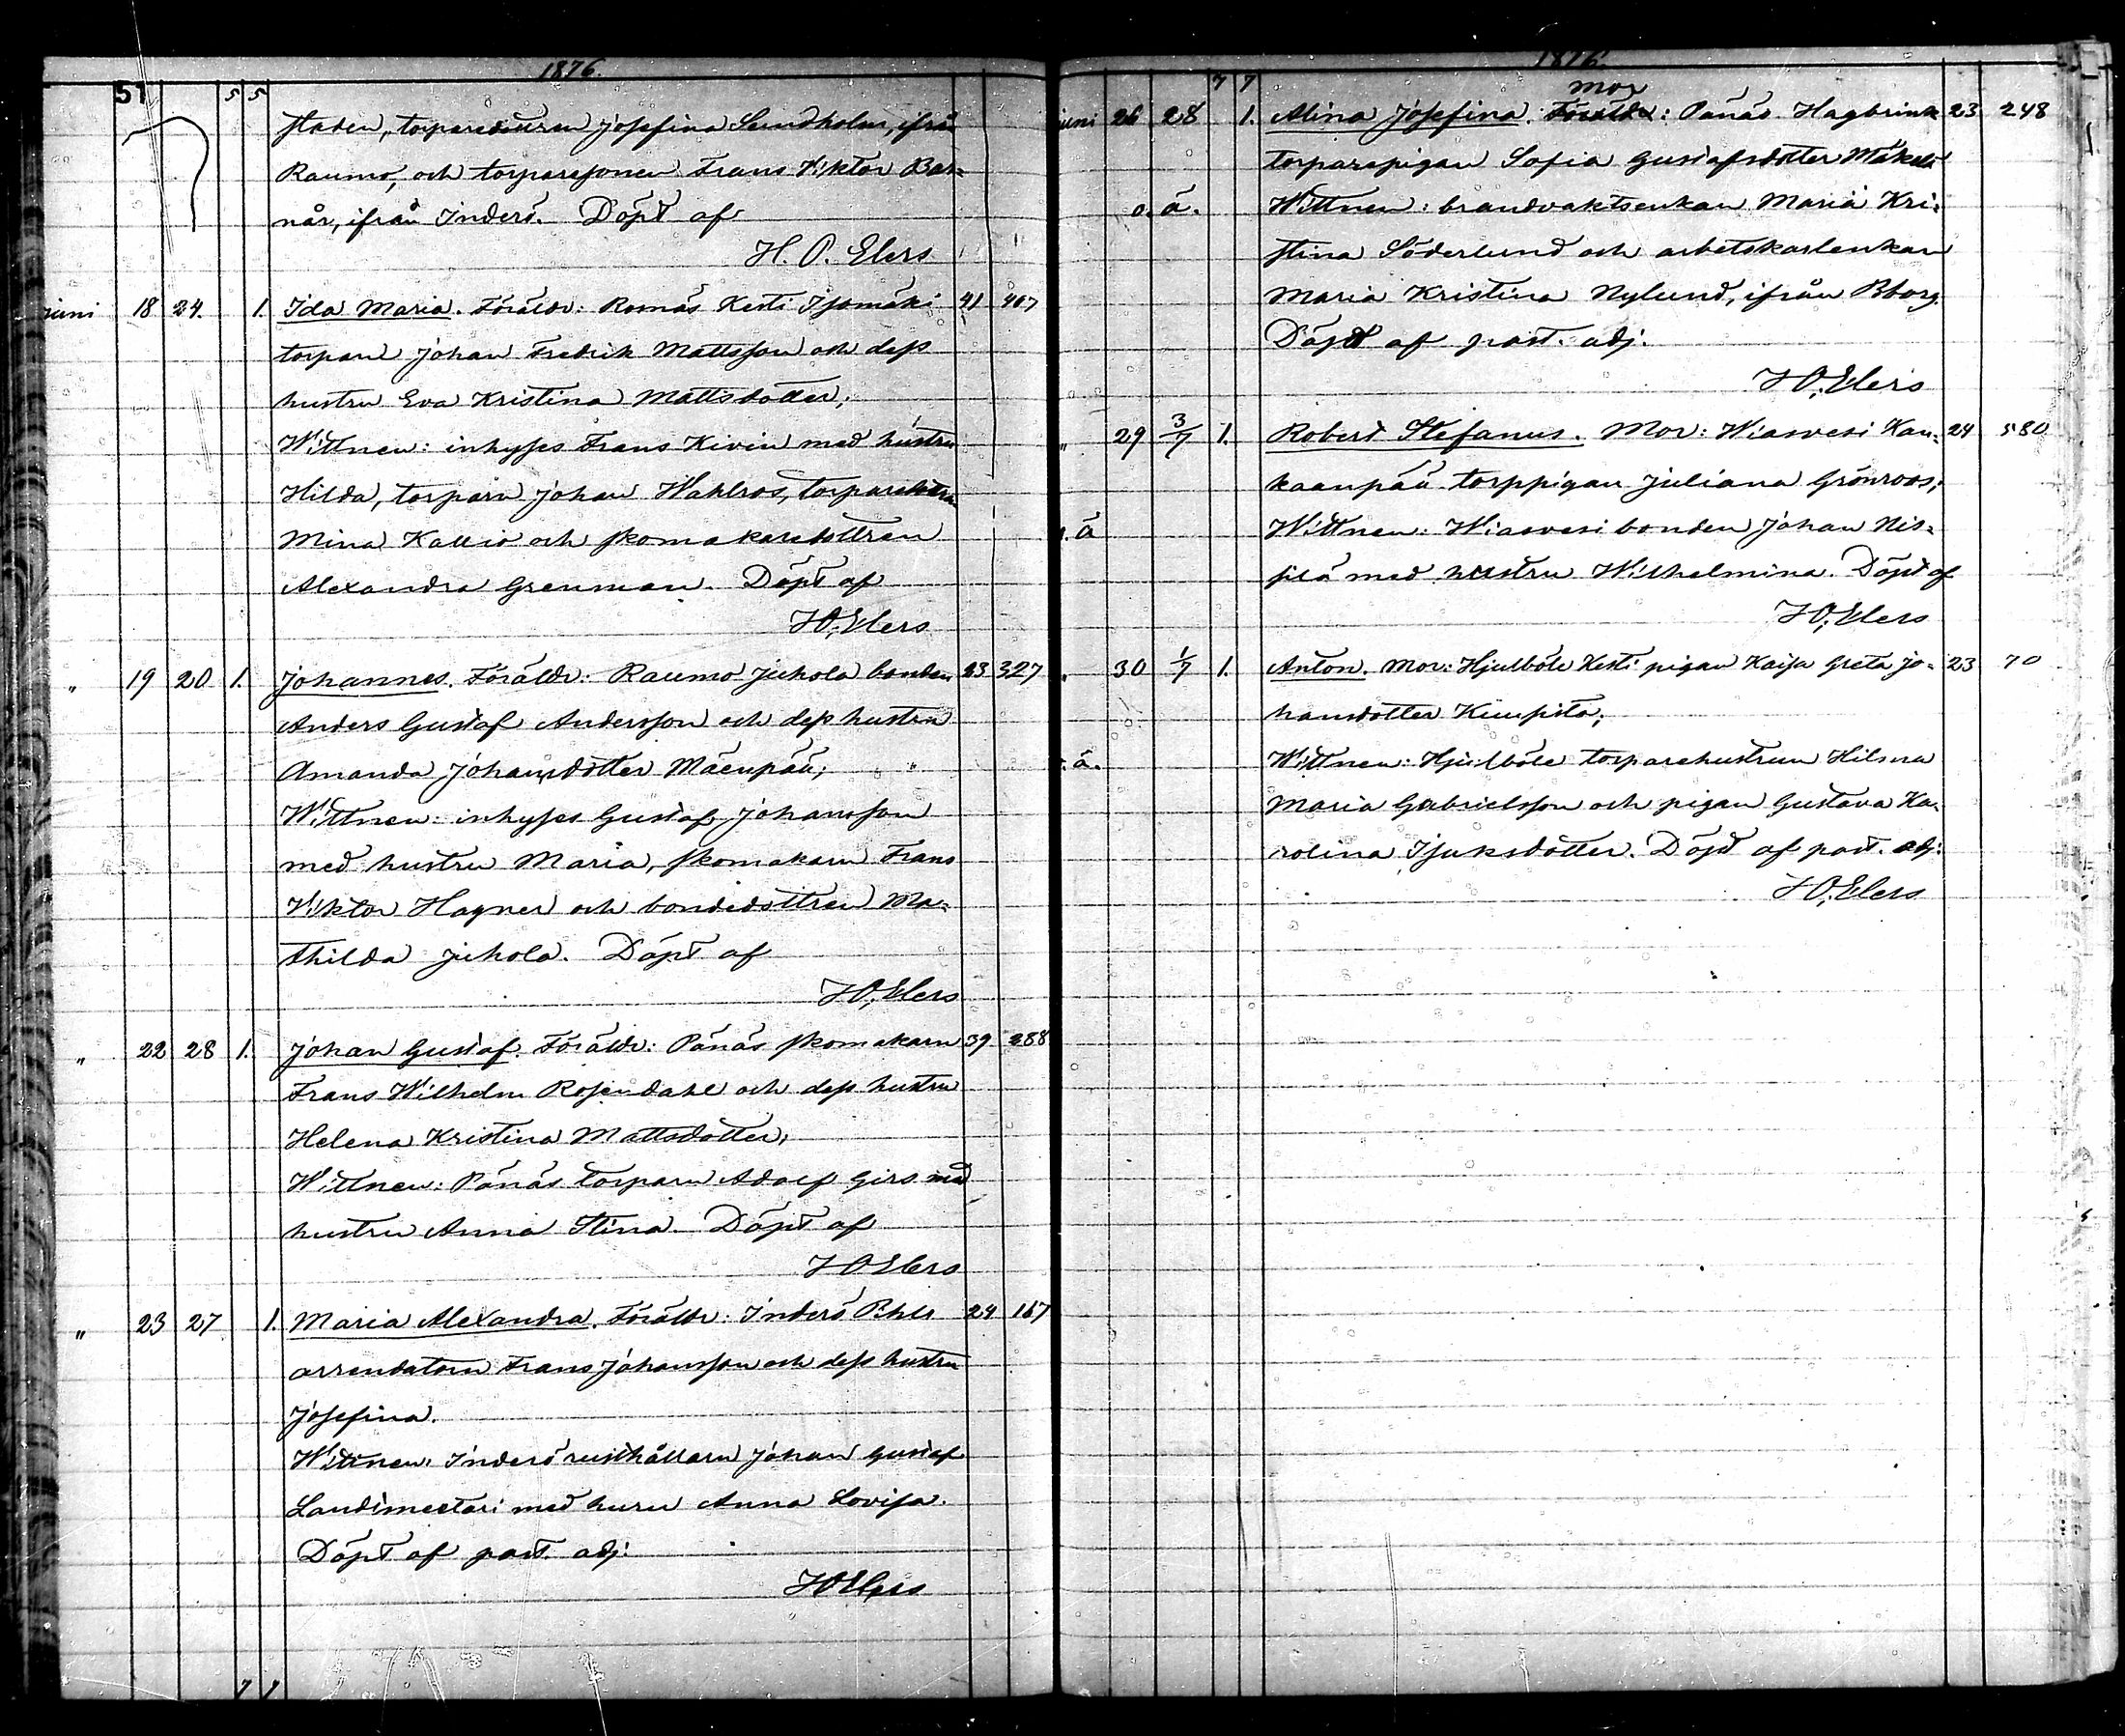 1876.
57 5 5
staden, torparedottren Josefina Sundholm, ifrån
Raumo, och torparesonen Frans Viktor Bar-
når, ifrån Inderö. Döpt af
H. O. Elers
juni 18 24. 1. Ida Maria. Föräldr: Rosnäs Kesti Isomäki 41 407
torparn Johan Fredrik Mattsson och dess
hustru Eva Kristina Mattsdotter;
Wittnen: inhyses Frans Kivin med hustru
Hilda, torparn Johan Wahlros, torparedottren
Mina Kallio och skomakaredottren
Alexandra Grenman. Döpt af
H.O. Elers
„ 19 20 1. Johannes. Föräldr: Raumo Juhola bonden 23 327
Anders Gustaf Andersson och dess hustru
Amanda Johansdotter Mäenpää;
Wittnen: inhyses Gustaf Johansson
med hustru Maria, skomakarn Frans
Viktor Hagner och bondedottren Ma-
thilda Juhola. Döpt af
H.O. Elers
„ 22 28 1. Johan Gustaf. Föräldr: Pånäs skomakarn 39 288
Frans Wilhelm Rosendahl och dess hustru
Helena Kristina Mattsdotter;
Wittnen: Pånäs torparn Adolf Girs med
hustru Anna Stina. Döpt af
H O Elers
„ 23 27 1. Maria Alexandra. Föräldr: Inderö Pihls 24 167
arrendatorn Frans Johansson och dess hustru
Josefina.
Wittnen: Inderö rusthållarn Johan Gustaf
Landimectari med huru Anna Lovisa.
Döpt af past. adj:
H O Elers
7 7
1876.
7 7 mor
juni 26 28 1. Alina Josefina. Föräldr: Pånäs Hagbrink 23 248
torparepigan Sofia Gustafsdotter Mäkelä
o. ä. Wittnen: brandvaktsenkan Maria Kri-
stina Söderlund och arbetskarlenkan
Maria Kristina Nylund, ifrån Bborg.
Döpt af past. adj.
H.O. Elers
„ 29 3/7 1. Robert Stefanus. Mor: Wiasvesi Kan- 24 580
kaanpää torppigan Juliana Grönroos;
o. ä Wittnen: Wiasvesi bonden Johan Nis-
silä med hustru Wilhelmina. Döpt af
H.O. Elers
„ 30 1/7 1. Anton. Mor: Hjulböle Kesti pigan Kajsa Greta Jo- 23 70
hansdotter Kiimpito;
o. ä. Wittnen: Hjulböle torparehustrun Hilma
Maria Gabrielsson och pigan Gustava Ka-
rolina Isaksdotter. Döpt af past. adj:
H.O. Elers